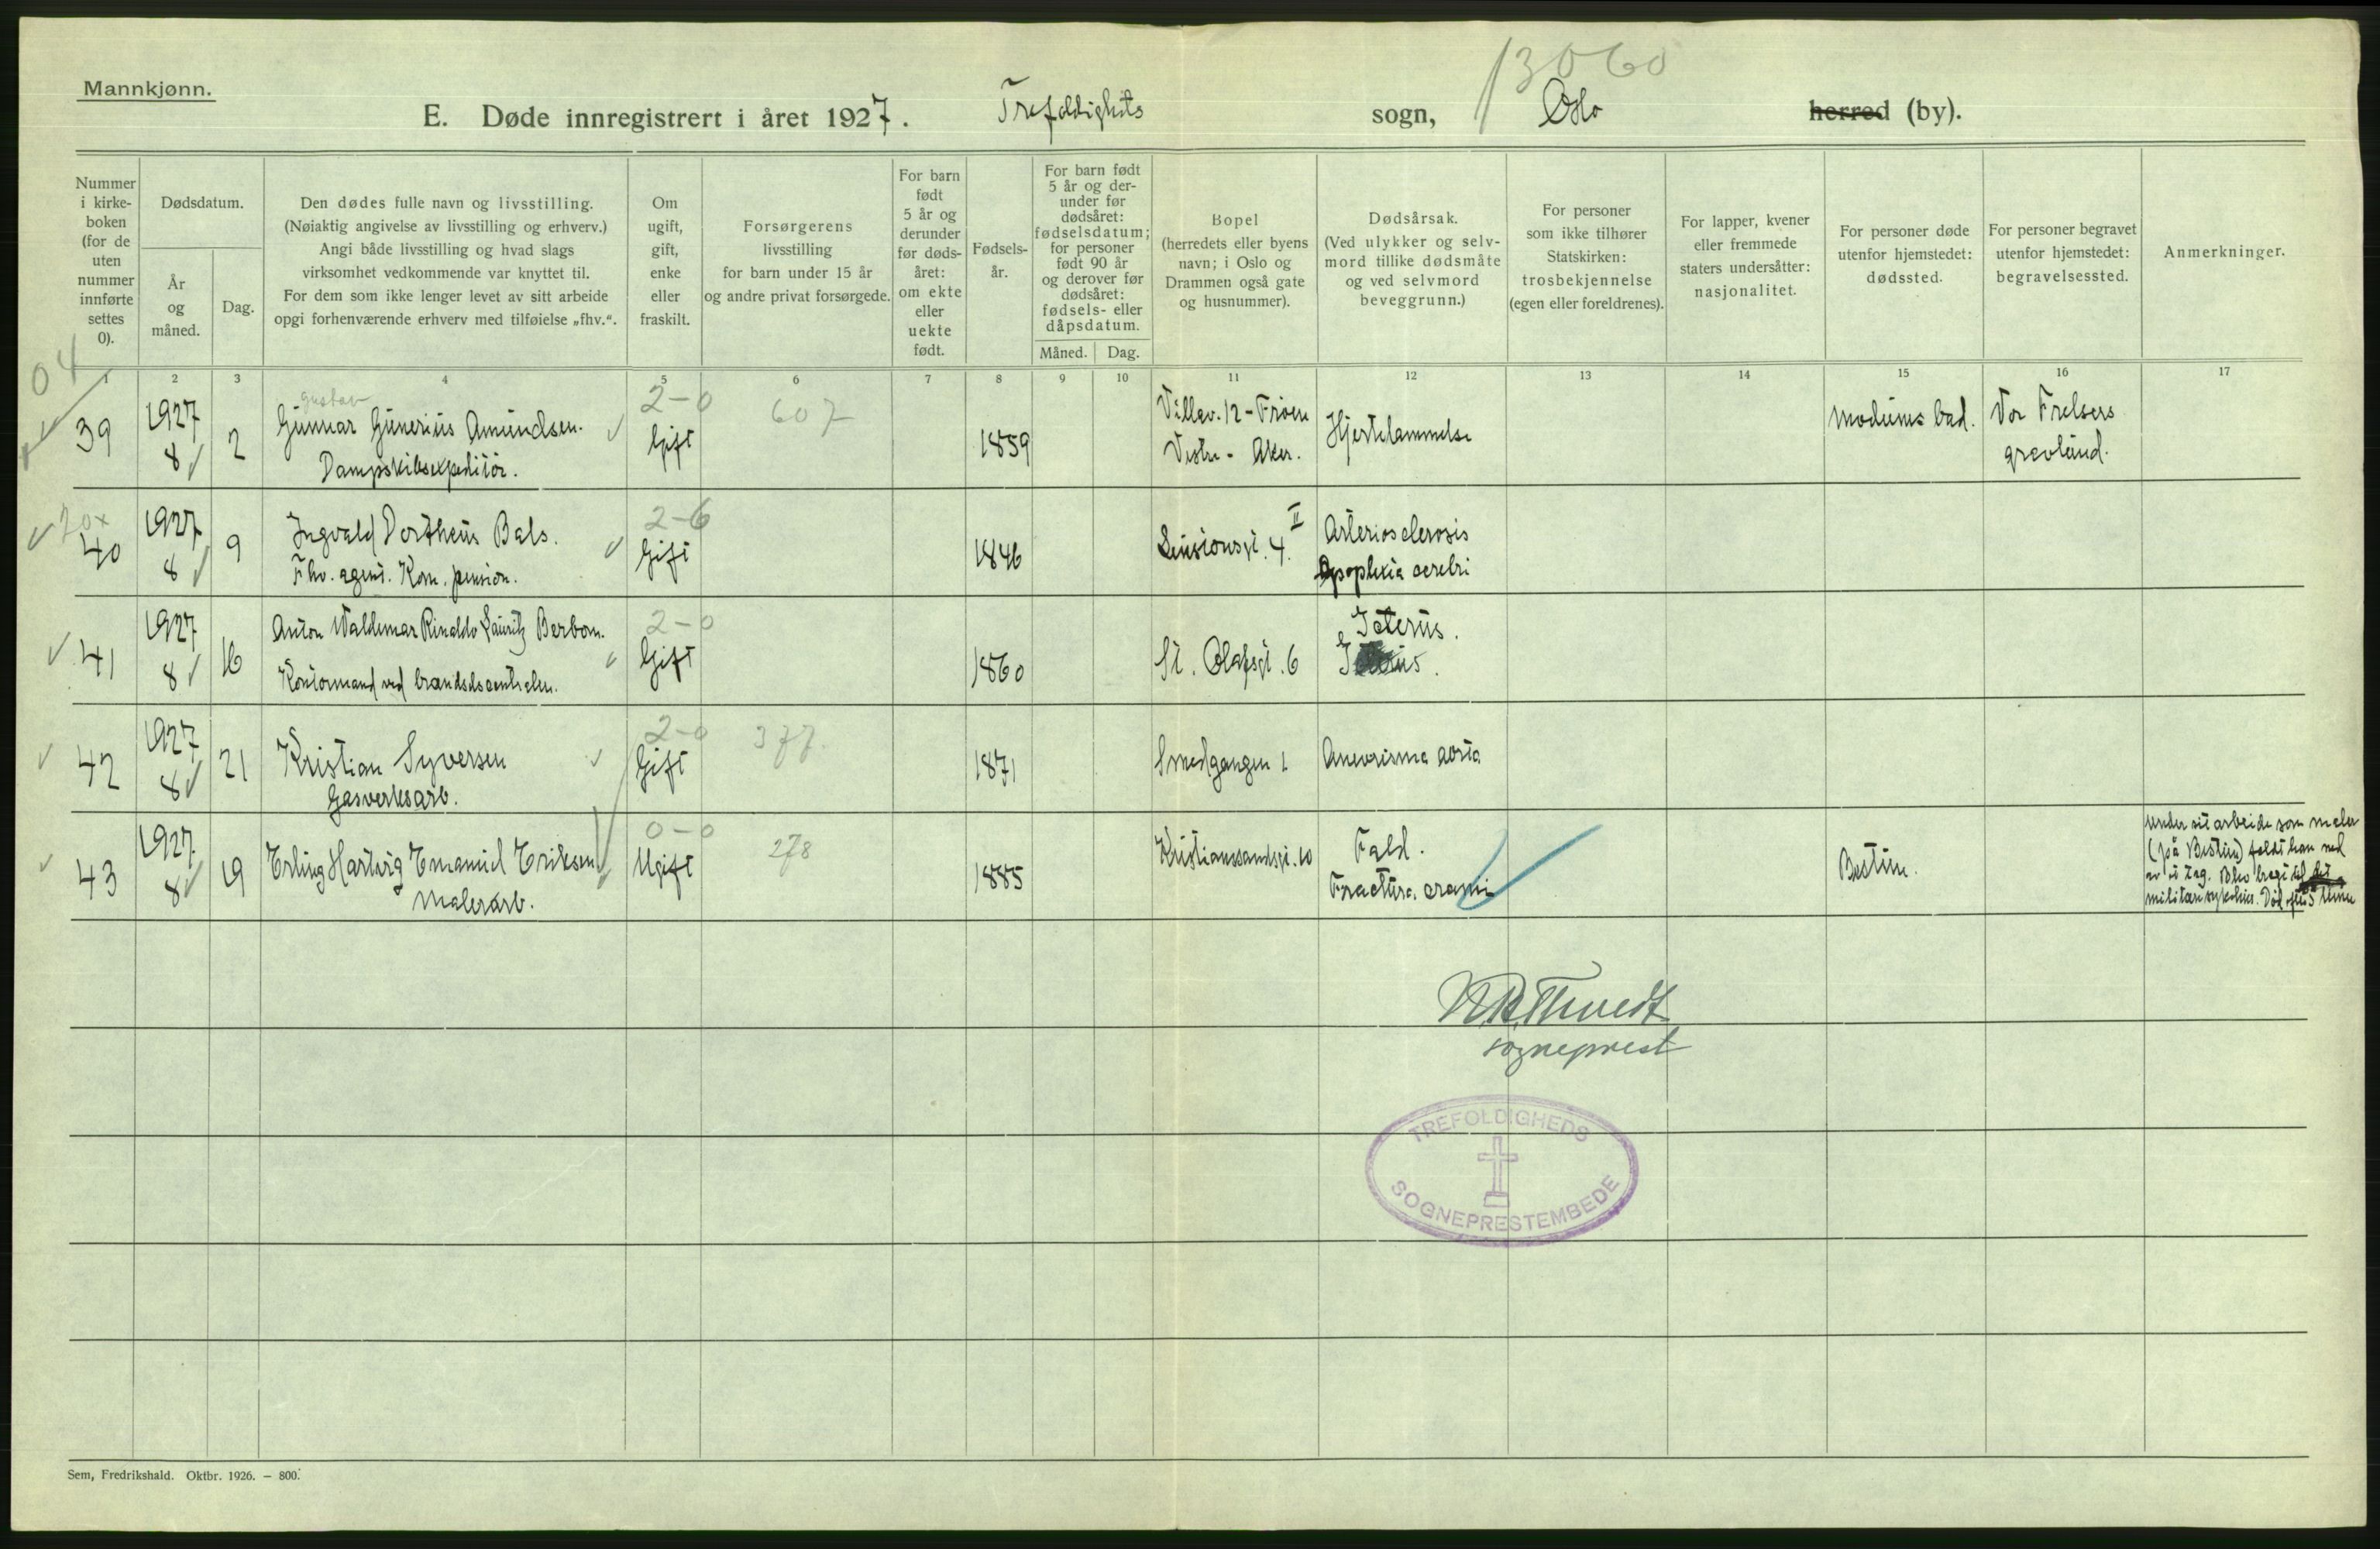 13060
Mannkjønn.
E. Døde innregistrert i året 1927. Trefoldighets sogn, Oslo herred (by).
Nummer i kirke-boken (for de uten nummer innførte settes 0).
Dødsdatum.
År og måned.
Dag.
Den dødes fulle navn og livsstilling.
(Nøiaktig angivelse av livsstilling og erhverv.)
Angi både livsstilling og hvad slags
virksomhet vedkommende var knyttet til.
For dem som ikke lenger levet av sitt arbeide
opgi forhenværende erhverv med tilføielse „fhv.“.
Om ugift, gift, enke eller fraskilt.
Forsørgerens
livsstilling
for barn under 15 år
og andre privat forsørgede.
For barn født 5 år og derunder før døds-året: om ekte eller uekte født.
Fødsels-år.
For barn født 5 år og der-under før dødsåret: fødselsdatum; for personer født 90 år og derover før dødsåret: fødsels- eller dåpsdatum.
Måned. Dag.
Bopel
(herredets eller byens
navn; i Oslo og
Drammen også gate
og husnummer).
Dødsårsak.
(Ved ulykker og selv-
mord tillike dødsmåte
og ved selvmord
beveggrunn.)
For personer
som ikke tilhører
Statskirken:
trosbekjennelse
(egen eller foreldrenes).
For lapper, kvener
eller fremmede
staters undersåtter:
nasjonalitet.
For personer døde
utenfor hjemstedet:
dødssted.
For personer begravet
utenfor hjemstedet:
begravelsessted.
Anmerkninger.
1 2 3 4 5 6 7 8 9 10 11 12 13 14 15 16 17
04
39 1927 8 2 Gustav Gunnar Gunerius Amundsen. Dampskibsexpeditör. 2-0 Gift 607 1859 Villav. 12 - Fröen Vestre - Aker. Hjertelammelse Modums bad. Vor Frelsers gravlund.
40 1927 8 9 Ingvald Dortheus Bals. Fhv. agent. Kom. pension. 2-6 Gift 1846 4 II Arteriosclerosis Apoplexia cerebri
41 1927 8 16 Anton Waldemar Rinaldo Lauritz Berbom. Kontormand ved brandscentralen. 2-0 Gift 1860 St. Olafsgt. 6 Icterus.
42 1927 8 21 Kristian Syversen Gasverksarb. 2-0 Gift 377 1871 Smedgangen 1 Anevrisma aorta
43 1927 8 19 Erling Hartvig Emanuel Eriksen Malerarb. 0-0 Ugift 278 1885 Kristianssandsgt. 10 Fald. Fractura cranii Bestun.
under sit arbeide som maler
(på Bestun) faldt han ned
av et tag. Blev bragt til
militærsykehus. Död efter
sogneprest
TREFOLDIGHEDS
SOGNEPRESTEMBEDE
Sem, Fredrikshald. Oktbr. 1926. – 800.